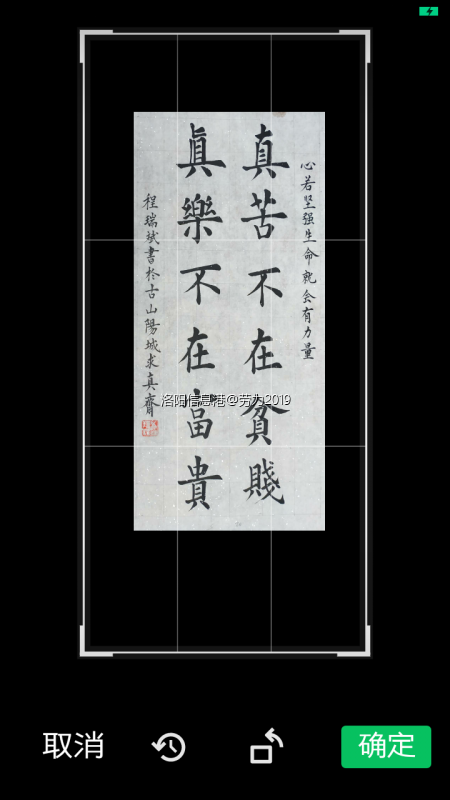 心若坚强生命就会有力量
真苦不在貧賤
眞樂不在富貴
程瑞斌書於古山陽城求真齋
洛阳信息港@劳力2019
取消
确定